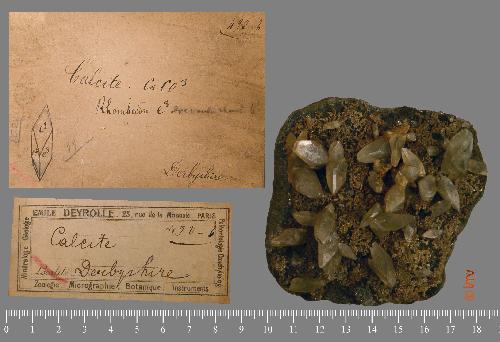 430-b
Calcite. Ca CO³
Rhomboèdre e³
Derbyshire
EMILE DEYROLLE. 23, rue de la Monnaie, PARIS
Minéralogie Géologie
Calcite
430-b
Localité Derbyshire
Zoologie Micrographie Botanique Instruments
0 1 2 3 4 5 6 7 8 9 10 11 12 13 14 15 16 17 18